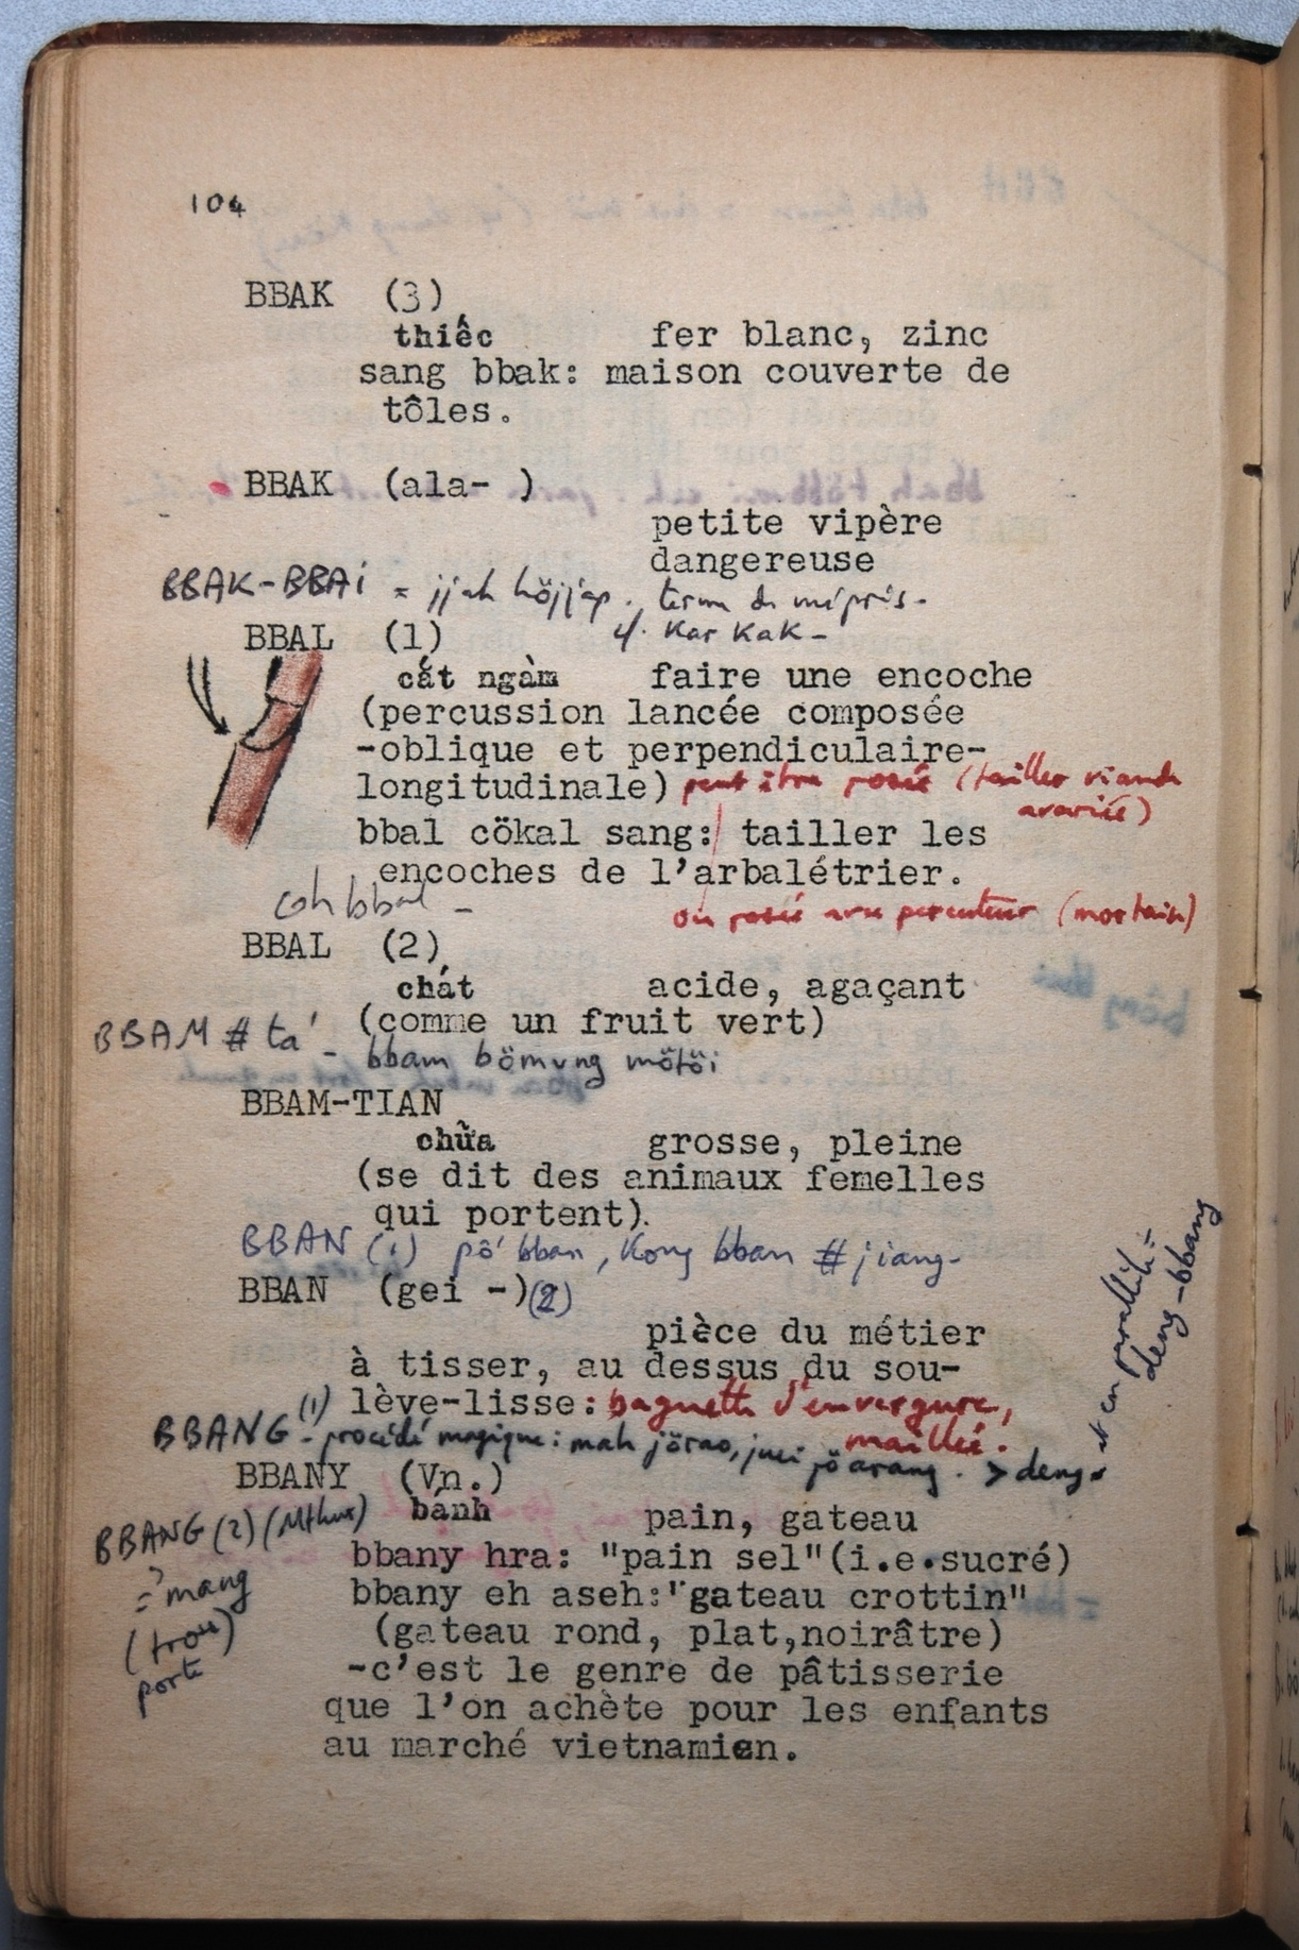 104
BBAK (3)
thiếc fer blanc, zinc
sang bbak: maison couverte de
tôles.
BBAK (ala- )
petite vipère
dangereuse
BBAK-BBAi = jjah höjjap. terme de mépris.
cf. Kar Kak -
BBAL (1)
cắt ngàm faire une encoche
(percussion lancée composée
-oblique et perpendiculaire-
longitudinale) peut être posée (tailler viande
avariée)
bbal cökal sang: tailler les
encoches de l'arbalétrier.
coh bbal -
ou posée avec percuteur (mortaise)
BBAL (2)
chát acide, agaçant
(comme un fruit vert)
BBAM # ta' - bbam bömung mötöi
BBAM-TIAN
chửa grosse, pleine
(se dit des animaux femelles
qui portent).
BBAN (1) pô' bban, Kong bban # jiang-
BBAN (gei -)(2)
pièce du métier
à tisser, au dessus du sou-
lève-lisse: baguette d'envergure,
maillée.
BBANG (1) - procédé magique: mah jörao, arang. > deng
et en parallèle =
deng-bbang
BBANY (Vn.)
bánh pain, gateau
BBANG (2) (Mthur)
= mang
(trou)
porte
bbany hra: "pain sel"(i.e.sucré)
bbany eh aseh:"gateau crottin"
(gateau rond, plat,noirâtre)
-c'est le genre de pâtisserie
que l'on achète pour les enfants
au marché vietnamien.